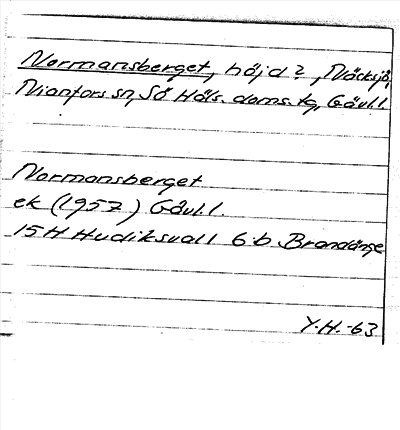 Normansberget, höjd?, Näcksjö,
Njanfors sn, Sö Häls. doms. tg, Gävl.l.
Normansberget
ek (1957) Gävl.l.
15H Hudiksvall 6b Brandänge
Y.H.-63